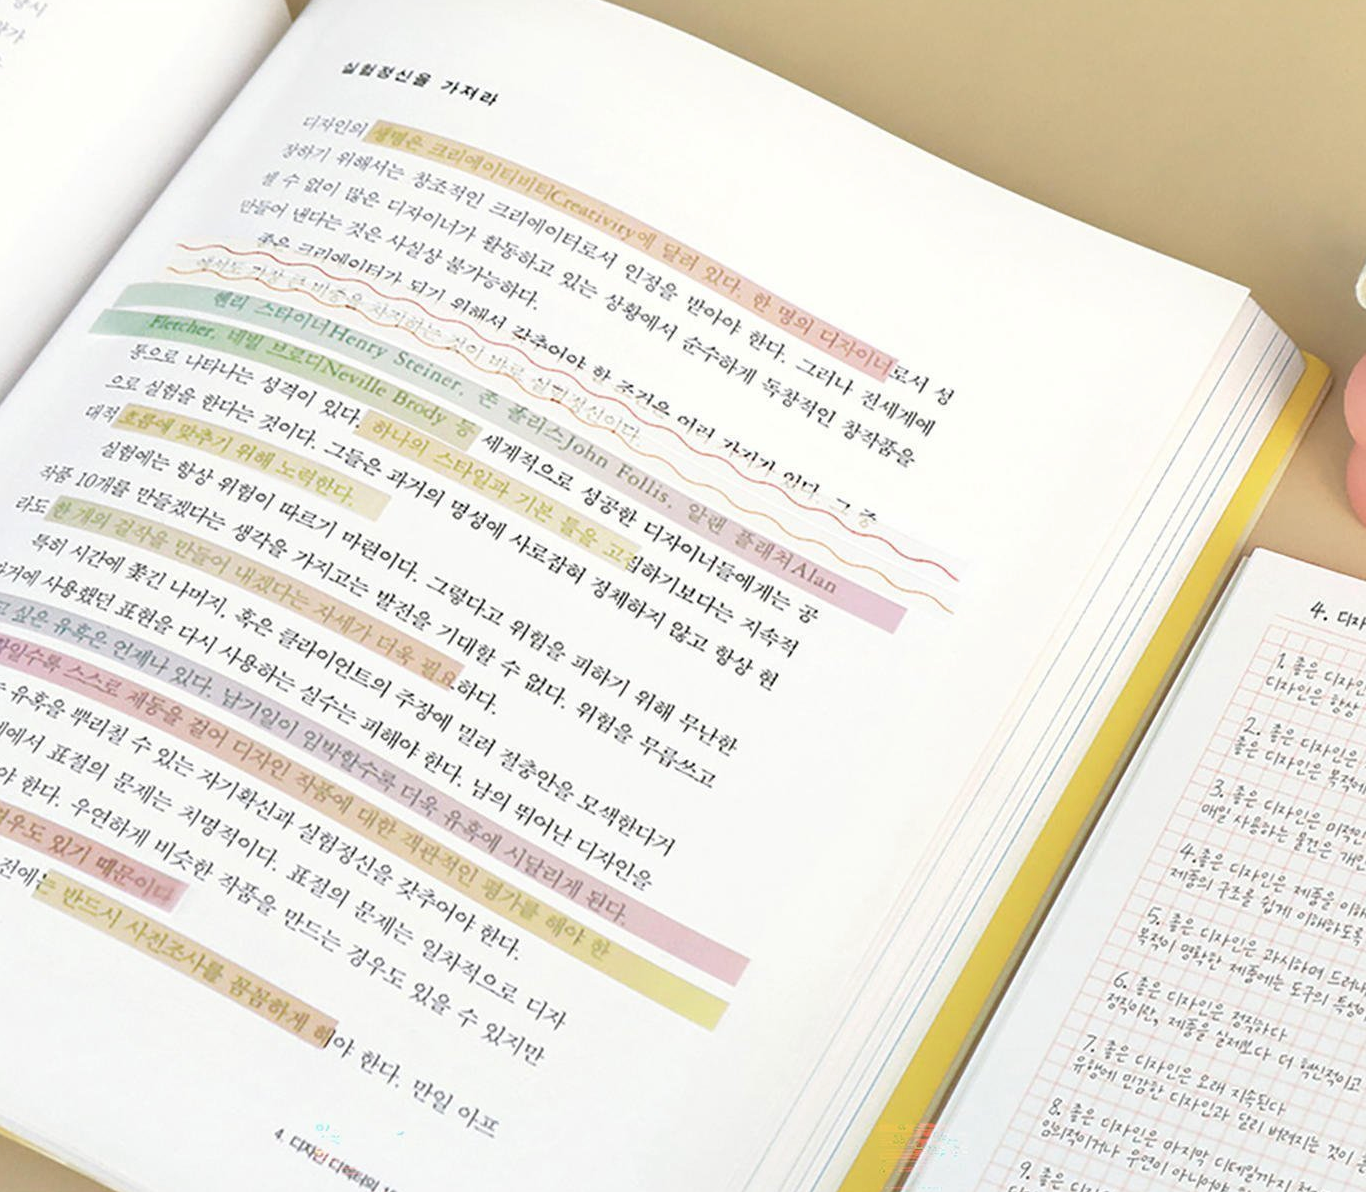 실험정신을 가져라
디자인의 생명은 크리에이티비티Creativiry에 달려 있다. 한 명의 디자이너로서 성
장하기 위해서는 창조적인 크리에이터로서 인정을 받아야 한다. 그러나 전세계에
셀 수 없이 많은 디자이너가 활동하고 있는 상황에서 순수하게 독창적인 창작품을
만들어 낸다는 것은 사실상 불가능하다.
좋은 크리에이터가 되기 위해서 갖추어야 할 조건은 여러 가지가 있다. 그 중
에서도 가장 큰 비중을 차지하는 것이 바로 실험정신이다.
헨리 스타이너Henry Steiner, 존 폴리스John Follis, 알랜 플래처Alan
Fletcher, 네빌 브로디Neville Brody 등 세계적으로 성공한 디자이너들에게는 공
통으로 나타나는 성격이 있다. 하나의 스타일과 기본 틀을 고집하기보다는 지속적
으로 실험을 한다는 것이다. 그들은 과거의 명성에 사로잡혀 정체하지 않고 항상 현
대적 흐름에 맞추기 위해 노력한다.
실험에는 항상 위험이 따르기 마련이다. 그렇다고 위험을 피하기 위해 무난한
작품 10개를 만들겠다는 생각을 가지고는 발전을 기대할 수 없다. 위험을 무릅쓰고
라도 한 개의 걸작을 만들어 내겠다는 자세가 더욱 필요하다.
특히 시간에 쫓긴 나머지, 혹은 클라이언트의 주장에 밀려 절충안을 모색한다거
과거에 사용했던 표현을 다시 사용하는 실수는 피해야 한다. 남의 뛰어난 디자인을
고 싶은 유혹은 언제나 있다. 납기일이 임박할수록 더욱 유혹에 시달리게 된다.
스스로 제동을 걸어 디자인 작품에 대한 객관적인 평가를 해야 한
유혹을 뿌리칠 수 있는 자기확신과 실험정신을 갖추어야 한다.
에서 표절의 문제는 치명적이다. 표절의 문제는 일차적으로 디자
야 한다. 우연하게 비슷한 작품을 만드는 경우도 있을 수 있지만
경우도 있기 때문이다
전에는 반드시 사전조사를 꼼꼼하게 해야 한다. 만일 아프
4. 디자인
4. 디자
1. 좋은 디자인
디자인은 항상
2. 좋은 디자인은
좋은 디자인은 목적에
3. 좋은 디자인은 미적인
매일 사용하는 물건은 개인
4. 좋은 디자인은 제품을 이해
제품의 구조를 쉽게 이해하도록
5. 좋은 디자인은 과시하며 드러나
목적이 명확한 제품에는 도구의 특성
6. 좋은 디자인은 정직하다
정직이란, 제품을 실제보다 더 혁신적이고
7. 좋은 디자인은 오래 지속된다
유행에 민감한 디자인과 달리 버려지는 것이
8. 좋은 디자인은 마지막 디테일까지
임의적이거나 우연이 아니어야
9. 좋은 디자인은